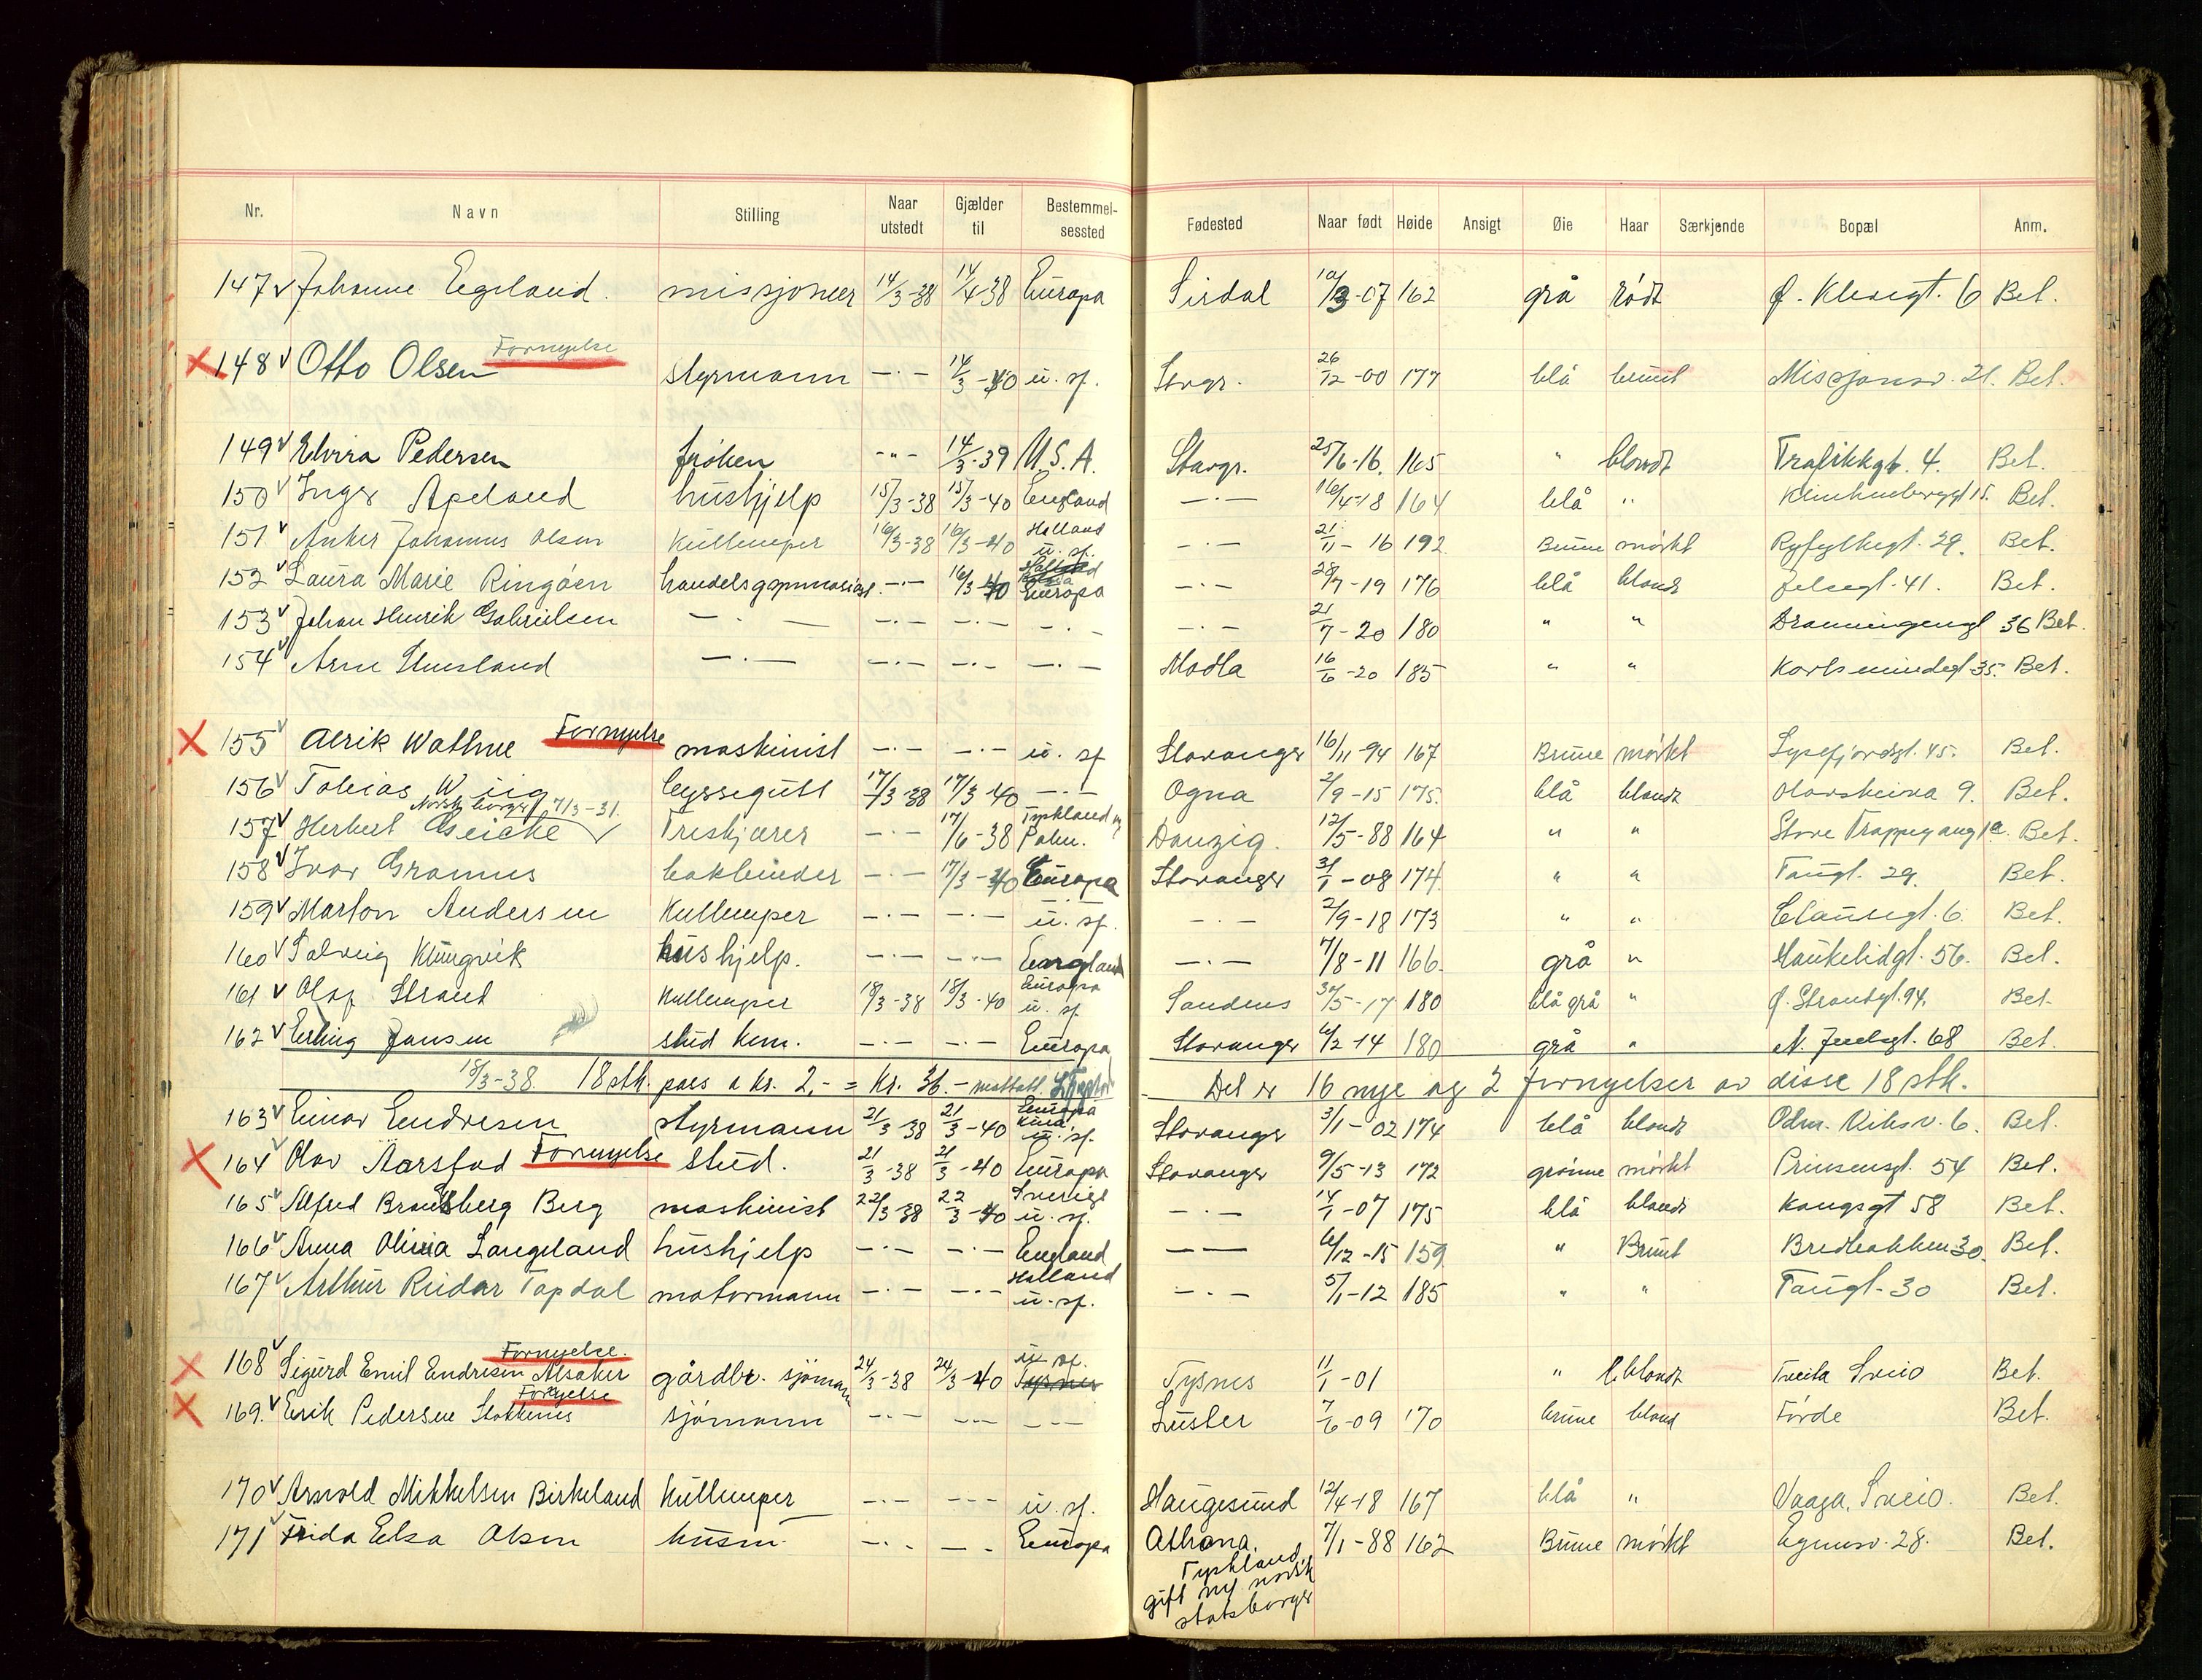 Nr. Navn Stilling Naar utstedt Gjælder til Bestemmelsessted Fødested Naar født Høide Ansigt Øie Haar Særkjende Bopæl Anm.
147 v Johanne Egeland. missjonær 14/3-38 14/4-38 Europa Sirdal 10/3-07 162 grå rødt Bet.
Fornyelse
X 148 v Otto Olsen styrmann -·- 14/3-40 u. sf. Svgr. 26/12-00 177 blå brunt Missjonsv. 21. Bet.
149 v Elvira Pedersen frøken -"- 14/3-39 U.S.A. Stavgr. 25/6-16. 165 " blondt Trafikkgt. 4. Bet.
150 v Inger Apeland hushjelp 15/3-38 15/3-40 England -·- 16/4-18 164 blå " Bet.
151 v Anker Johannes Olsen Kullemper 16/3-38 16/3-40 Holland u. sf. -·- 21/11-16 192 Brune mørkt Ryfylkegt. 29. Bet.
152 v Laura Marie Ringøen handelsgymnasiast. -·- 16/3-40 Europa -·- 28/7-19 176 blå blondt Jelsegt. 41. Bet.
153 v Johan Henrik Gabrielsen -·- -·- -·- -·- -·- 21/7-20 180 " " Dronningengt 36 Bet.
154 v Arne -·- -·- -·- -·- Madla 16/6-20 185 " " Karlsmindegt 35. Bet.
X 155 v Alrik Wathne Fornyelse maskinist -·- -·- u. sf Stavanger 16/11-94 167 Brune mørkt Lysefjordgt. 45. Bet.
156 v Tobias Wiig byssegutt 17/3-38 17/3-40 -·- Ogna 2/9-15 175. blå blondt Olavskleiva 9. Bet.
Norsk borger 17/3-31.
157 v Herbert Geicke Friskjærer -·- 17/6-38 Tyskland og Polen. Danzig. 12/5-88 164 " " Store Trappegang 1a. Bet.
158 v Ivar Gramnes bokbinder -·- 17/3-40 Europa Stavanger 31/1-08 174 " " Taugt. 29. Bet.
159 v Marton Andersen Kullemper -·- -·- u. sf. -·- 2/9-18 173 " " Clausegt. 6. Bet.
160 v Solveig Klungvik hushjelp. -·- -·- England -·- 7/8-11 166. grå " Haukelidgt. 56. Bet.
161 v Olaf Strand Kullemper 18/3-38 18/3-40 Europa u. sf Sandnes 30/5-17 180 blågrå " Ø. Strandgt. 94. Bet.
162 v Erling Jansen stud kem. -·- -·- Europa Stavanger 6/2-14 180 grå " N. Juelsgt. 68 Bet.
18/3-38. 18 stk. pass a kr. 2,- = Kr. 36.- mottatt. Det er 16 nye og 2 fornyelser av disse 18 stk.
163 v Einar Endresen styrmann 21/3-38 21/3-40 Europa Kina u. sf. Stavanger 3/1-02 174 blå blondt Odm. Viksv. 6. Bet.
X 164 v Olav Aarstad Fornyelse stud. 21/3-38 21/3-40 Europa Stavanger 9/5-13 172 grønne mørkt Prinsensgt. 54 Bet.
165 v Alfred Berg maskinist 22/3-38 22/3-40 Sverige u. sf. -·- 14/1-07 175 blå blondt Kongsgt 58 Bet.
166 v Anna Olivia Langeland hushjelp -·- -·- England -- 6/12-15 159 " Brunt Bredbakken 30. Bet.
167 v Arthur Reidar Topdal motormann -·- -·- Holland u. sf. -·- 5/1-12 185 " " Taugt. 30 Bet.
Fornyelse.
X 168 v Sigurd Emil Endresen Alsaker gårdbr. sjömann 24/3-38 24/3-40 u. sf. Tysnes Tysnes 11/1-01 " blondt Tveita Sveio Bet.
Fornyelse
X 169. v Erik Pedersen Stokkenes sjömann -·- -·- -·- Luster 7/6-09 170 brune blond Förde Bet.
170 v Arnold Mikkelsen Birkeland Kullemper -·- -·- u. sf. Haugesund 12/4-18 167 blå " Vaaga, Sveio. Bet.
171 v Frida Elsa Olsen husm. -·- -·- Europa Altona. 7/1-88 162 Brune mørkt Egenesv. 28. Bet.
Tyskland,
gift m/ norsk
statsborger